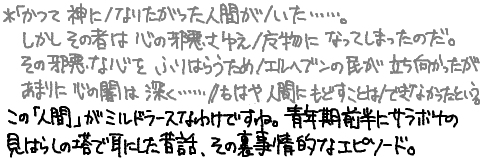 *「かつて 神に/なりたがった人間が/いた……。
しかし その者は 心の邪悪さゆえ/魔物に なってしまったのだ。
その邪悪な心を ふりはらうため/エルヘブンの民が 立ち向かったが
あまりに 心の闇は 深く……//もはや 人間に もどすことは/できなかったという。
この「人間」がミルドラースなわけですね。青年期前半にサラボナの
見はらしの塔で耳にした昔話、その裏事情的なエピソード。